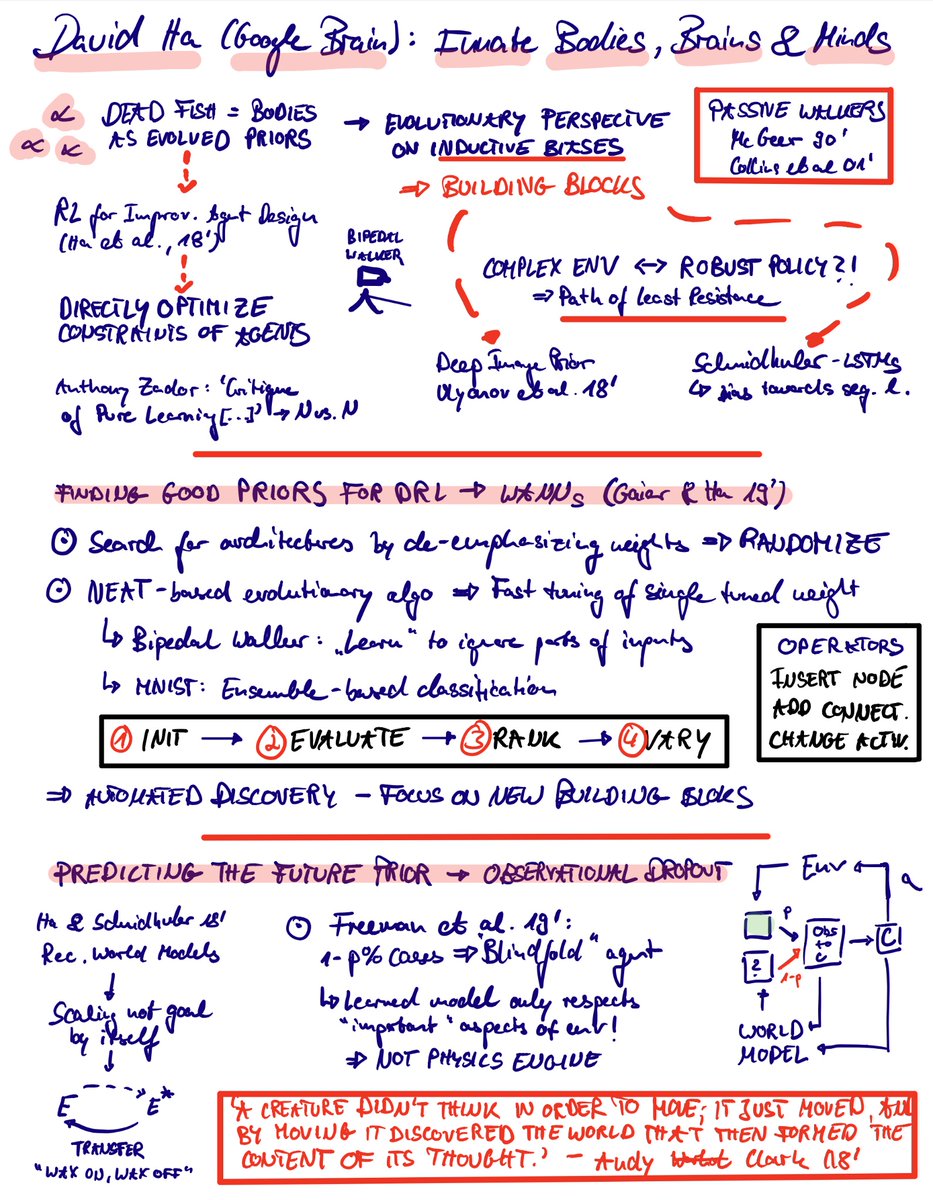 David Ha (Google Brain): Innate Bodies, Brains & Minds
DEAD FISH = BODIES
AS EVOLVED PRIORS
→ EVOLUTIONARY PERSPECTIVE
ON INDUCTIVE BIASES
⇒ BUILDING BLOCKS
PASSIVE WALKERS
Mc Geer 90'
Collins et al 01'
RL for Improv. Agent Design
(Ha et al., 18')
BIPEDAL
WALKER
COMPLEX ENV ↔ ROBUST POLICY?!
⇒ Path of Least Resistance
DIRECTLY OPTIMIZE
CONSTRAINTS OF AGENTS
Deep Image Prior
Ulyanov et al. 18'
Schmidhuber - LSTMs
↳ bias towards seq. l.
Anthony Zador: 'Critique
of Pure Learning [...]' → N vs. N
FINDING GOOD PRIORS FOR DRL → WANNs (Gaier & Ha 19')
⊙ Search for architectures by de-emphasizing weights ⇒ RANDOMIZE
⊙ NEAT-based evolutionary algo ⇒ Fast tuning of single tuned weight
↳ Bipedal Walker: „Learn" to ignore parts of inputs
↳ MNIST: Ensemble-based classification
OPERATORS
INSERT NODE
ADD CONNECT.
CHANGE ACTIV.
① INIT → ② EVALUATE → ③ RANK → ④ VARY
⇒ AUTOMATED DISCOVERY - FOCUS ON NEW BUILDING BLOCKS
PREDICTING THE FUTURE PRIOR → OBSERVATIONAL DROPOUT
Ha & Schmidhuber 18'
Rec. World Models
Scaling not goal
by itself
E E*
TRANSFER
"WAX ON, WAX OFF"
⊙ Freeman et al. 19':
1-p% cases ⇒ "Blindfold" agent
↳ Learned model only respects
"important" aspects of env!
⇒ NOT PHYSICS ENGINE
Env a
p
Obs
to
C
C
?
1-p
WORLD
MODEL
'A CREATURE DIDN'T THINK IN ORDER TO MOVE; IT JUST MOVED, AND
BY MOVING IT DISCOVERED THE WORLD THAT THEN FORMED THE
CONTENT OF ITS THOUGHT.' - Andy Clark (18'